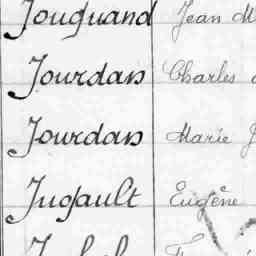 Jouguand Jean M
Jourdan Charles
Jourdan Marie J
Jugault Eugène